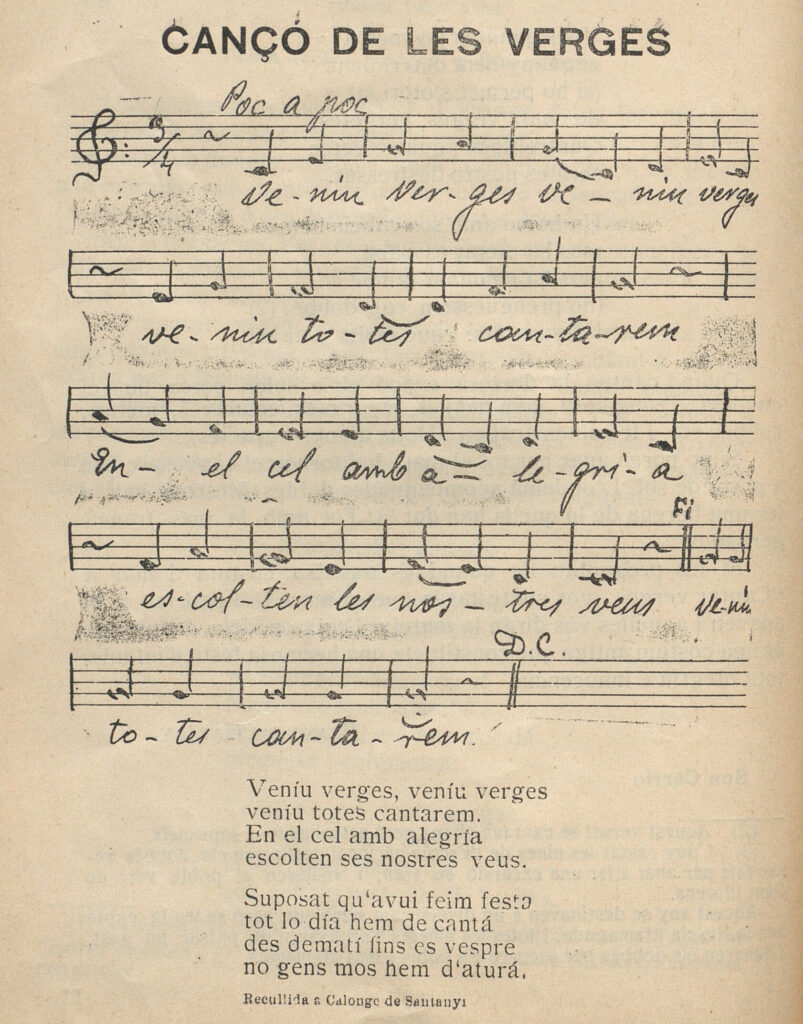 CANÇÓ DE LES VERGES
Poc a poc
3/4
Ve-niu ver-ges ve-niu verges
ve-niu to-tes can-ta-rem
En- el cel amb a- le-gri-a
Fi
es-col-ten les nos-tres veus ve-niu
D.C.
to-tes can-ta-rem.
Veníu verges, veníu verges
veníu totes cantarem.
En el cel amb alegría
escolten ses nostres veus.
Suposat qu'avui feim festa
tot lo día hem de cantá
des dematí fins es vespre
no gens mos hem d'aturá.
Recullida a Calonge de Santanyi